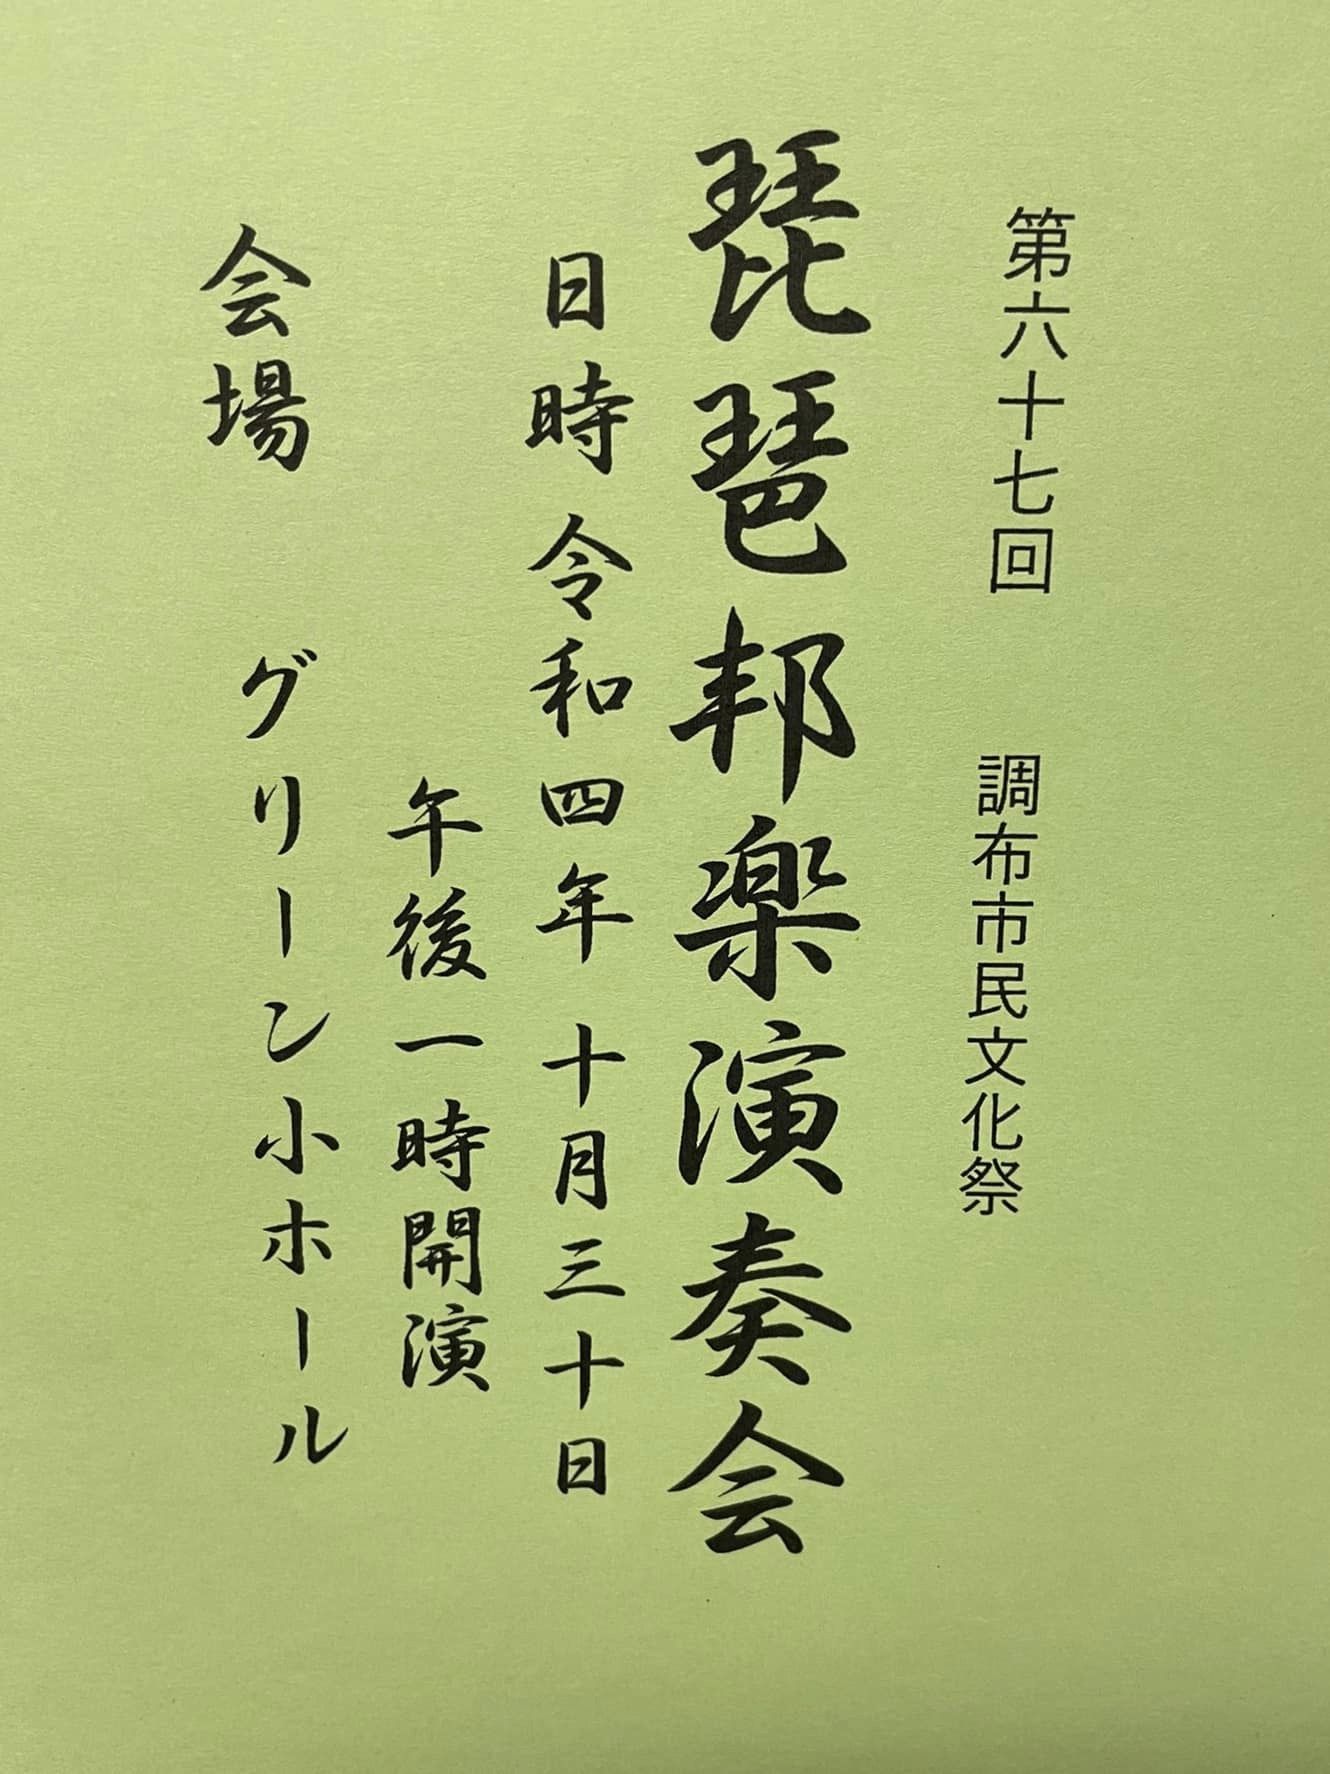 第六十七回　調布市民文化祭
琵琶邦楽演奏会
日時　令和四年十月三十日
午後一時開演
会場　グリーン小ホール